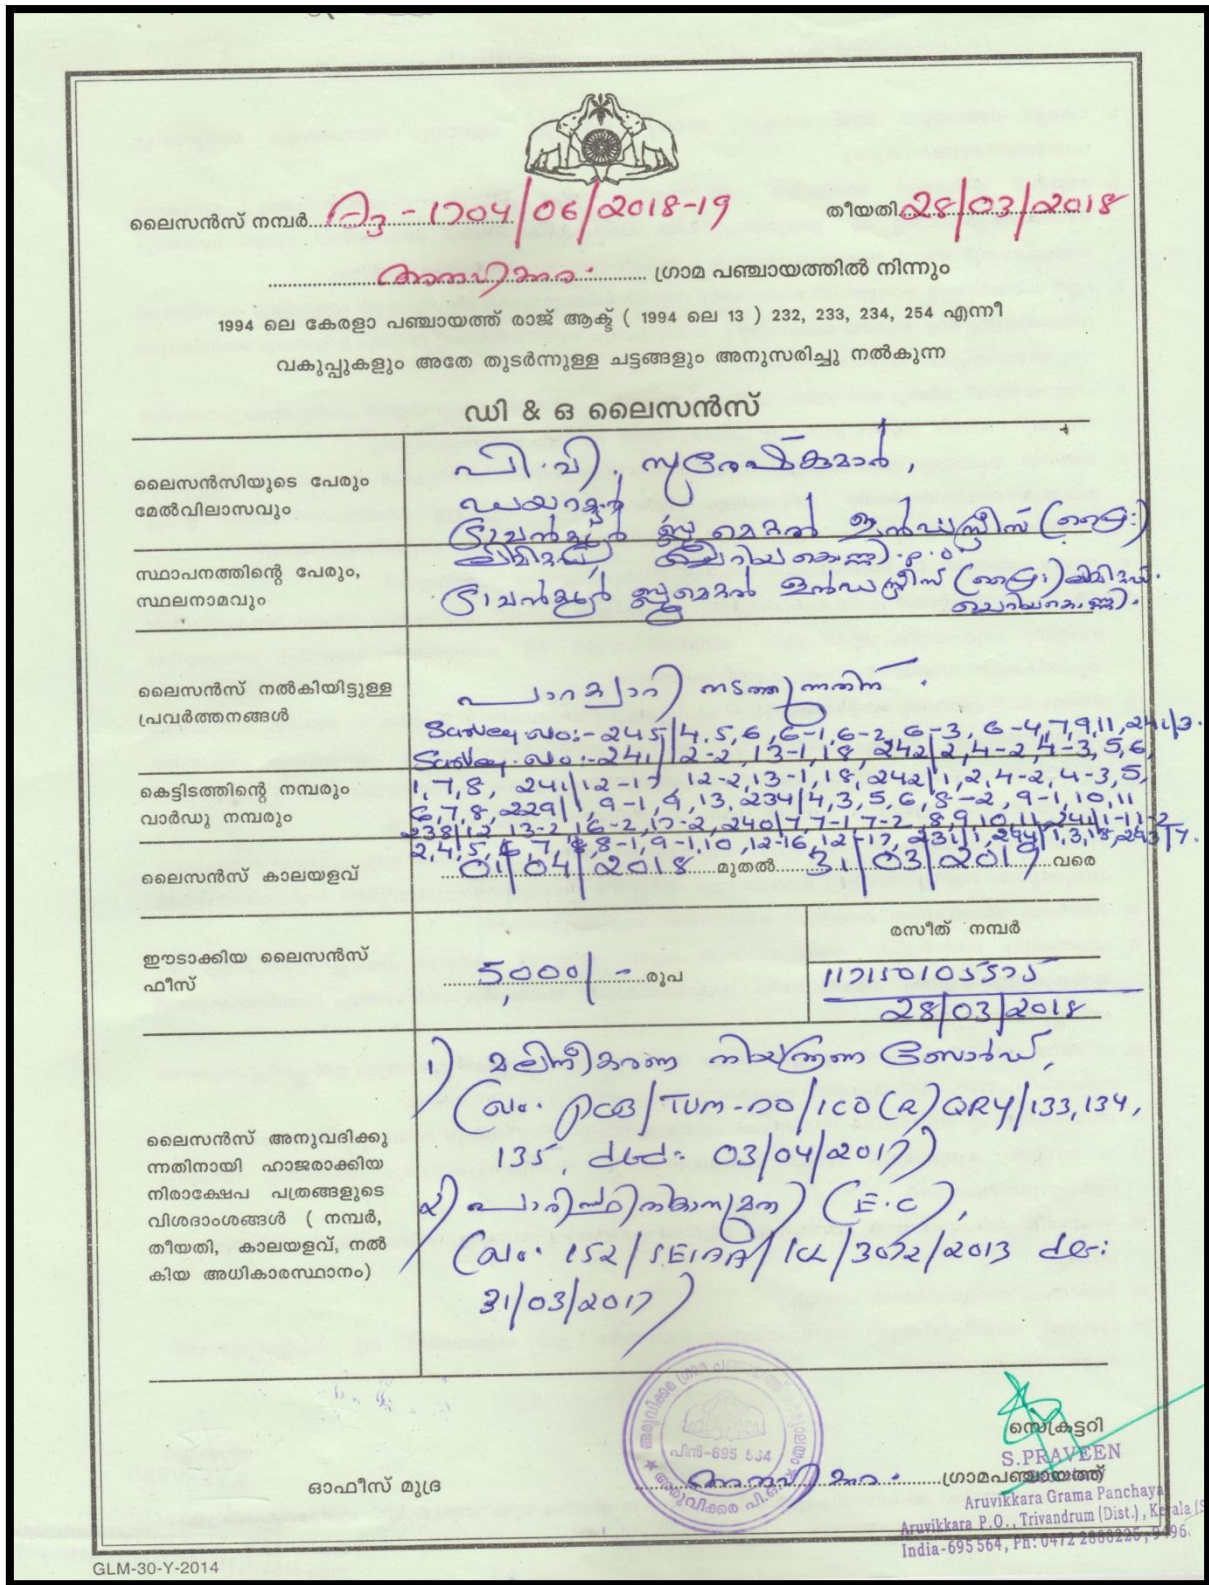 ലൈസൻസ് നമ്പർ A3-1704/06/2018-19 തീയതി 28/03/2018
അരുവിക്കര ഗ്രാമ പഞ്ചായത്തിൽ നിന്നും
1994 ലെ കേരളാ പഞ്ചായത്ത് രാജ് ആക്ട് ( 1994 ലെ 13 ) 232, 233, 234, 254 എന്നീ
വകുപ്പുകളും അതേ തുടർന്നുള്ള ചട്ടങ്ങളും അനുസരിച്ചു നൽകുന്ന
ഡി & ഒ ലൈസൻസ്
ലൈസൻസിയുടെ പേരും
മേൽവിലാസവും
പി.വി. സുരേഷ്കുമാർ,
ഡയറക്ടർ
ട്രാവൻകൂർ ബ്ലൂ മെറ്റൽ ഇൻഡസ്ട്രീസ് (പ്രൈ:)
ലിമിറ്റഡ്, ചെറിയകൊണ്ണി.p.o
സ്ഥാപനത്തിന്റെ പേരും,
സ്ഥലനാമവും
ട്രാവൻകൂർ ബ്ലൂമെറ്റൽ ഇൻഡസ്ട്രീസ് (പ്രൈ:) ലിമിറ്റഡ്.
ചെറിയകൊണ്ണി.
ലൈസൻസ് നൽകിയിട്ടുള്ള
പ്രവർത്തനങ്ങൾ
പാറക്വാറി നടത്തുന്നതിന്.
Survey നം:-245/4,5,6,6-1,6-2,6-3,6-4,7,9,11,241/3.
Survey. നം:-241/12-2,13-1,18,242/2,4-2,4-3,5,6,
കെട്ടിടത്തിന്റെ നമ്പരും
വാർഡു നമ്പരും
1,7,8, 241/12-17, 12-2,13-1,18,242/1,2,4-2,4-3,5,
6,7,8,229/1,9-1,9,13,234/4,3,5,6,8-2,9-1,10,11
238/12,13-2,16-2,17-2,240/7,7-1,7-2,8,9,10,11,241/1-11-2
2,4,5,6,7,8,8-1,9-1,10,12-16,12-17,231/1,294/1,3,18,293/7.
ലൈസൻസ് കാലയളവ്
01/04/2018 മുതൽ 31/03/2019 വരെ
ഈടാക്കിയ ലൈസൻസ്
ഫീസ്
5,000/- രൂപ
രസീത് നമ്പർ
117150105575
28/03/2018
ലൈസൻസ് അനുവദിക്കു
ന്നതിനായി ഹാജരാക്കിയ
നിരാക്ഷേപ പത്രങ്ങളുടെ
വിശദാംശങ്ങൾ ( നമ്പർ,
തീയതി, കാലയളവ്, നൽ
കിയ അധികാരസ്ഥാനം)
1) മലിനീകരണ നിയന്ത്രണ ബോർഡ്,
(നം. PCB/TVM-DO/ICO(R)QRY/133,134,
135, dtd: 03/04/2017)
2) പാരിസ്ഥിതികാനുമതി (E.C),
(നം. 152/SEIAA/KL/3072/2013 dt:
31/03/2017)
അരുവിക്കര ഗ്രാമ പഞ്ചായത്ത്
പിൻ-695 564
അരുവിക്കര പി.ഒ.
സെക്രട്ടറി
S.PRAVEEN
ഓഫീസ് മുദ്ര
അരുവിക്കര ഗ്രാമപഞ്ചായത്ത്
Aruvikkara Grama Panchaya
Aruvikkara P.O., Trivandrum (Dist.), Kerala (S
India-695 564, Ph: 0472 2888225, 9496
GLM-30-Y-2014